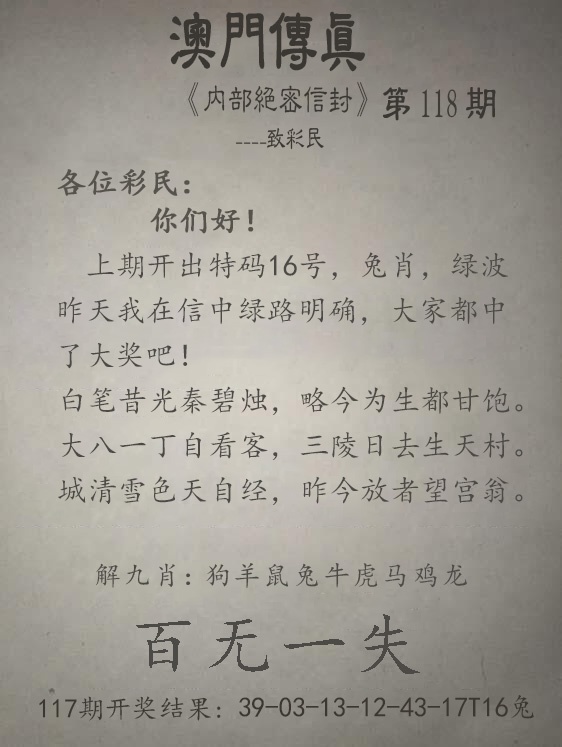 澳門傳眞
《内部絕密信封》第118期
----致彩民
各位彩民：
你们好！
上期开出特码16号，兔肖，绿波
昨天我在信中绿路明确，大家都中
了大奖吧！
白笔昔光秦碧烛，略今为生都甘饱。
大八一丁自看客，三陵日去生天村。
城清雪色天自经，昨今放者望宫翁。
解九肖：狗羊鼠兔牛虎马鸡龙
百无一失
117期开奖结果：39-03-13-12-43-17T16兔